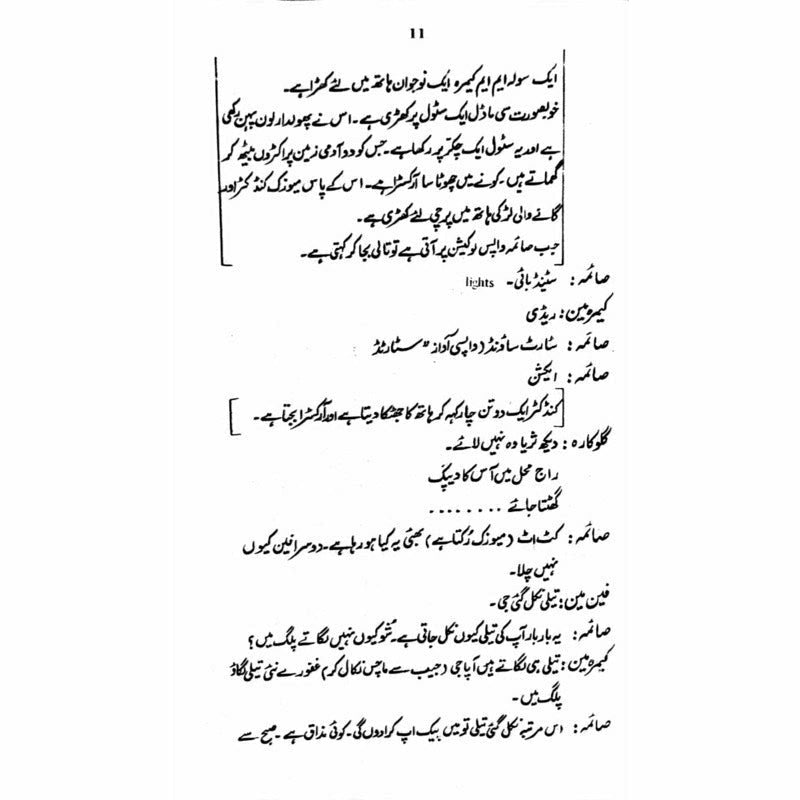 11
ایک سولہ ایم ایم کیمرہ ایک نوجوان ہاتھ میں لئے کھڑا ہے۔
خوبصورت سی ماڈل ایک سٹول پر کھڑی ہے۔ اس نے پھولدار لون پہن رکھی
ہے اور یہ سٹول ایک چکر پر رکھا ہے۔ جس کو دو آدمی زمین پر اکڑوں بیٹھ کر
گھماتے ہیں۔ کونے میں چھوٹا سا آرکسٹرا ہے۔ اس کے پاس میوزک کنڈکٹر اور
گانے والی لڑکی ہاتھ میں پرچی لئے کھڑی ہے۔
جب صائمہ واپس لوکیشن پر آتی ہے تو تالی بجا کر کہتی ہے۔
صائمہ: سٹینڈ بائی۔ lights
کیمرہ مین: ریڈی
صائمہ: سٹارٹ ساؤنڈ (واپسی آواز "سٹارٹڈ
صائمہ: ایکشن
کنڈکٹر ایک دو تن چار کہہ کر ہاتھ کا جھٹکا دیتا ہے اور آرکسٹرا بجتا ہے۔
گلوکارہ: دیکھ ثریا وہ نہیں لائے۔
راج محل میں آس کا دیپک
گھٹتا جائے ........
صائمہ: کٹ اٹ (میوزک رُکتا ہے) بھئی یہ کیا ہو رہا ہے۔ دوسرا فین کیوں
نہیں چلا۔
فین مین: تیلی نکل گئی جی۔
صائمہ: یہ بار بار آپ کی تیلی کیوں نکل جاتی ہے۔ شُو کیوں نہیں لگاتے پلگ میں؟
کیمرہ مین: تیلی ہی لگاتے ہیں آپا جی (جیب سے ماچس نکال کر) غفورے نئی تیلی لگاؤ
پلگ میں۔
صائمہ: اس مرتبہ نکل گئی تیلی تو میں پیک اپ کرا دوں گی۔ کوئی مذاق ہے۔ صبح سے